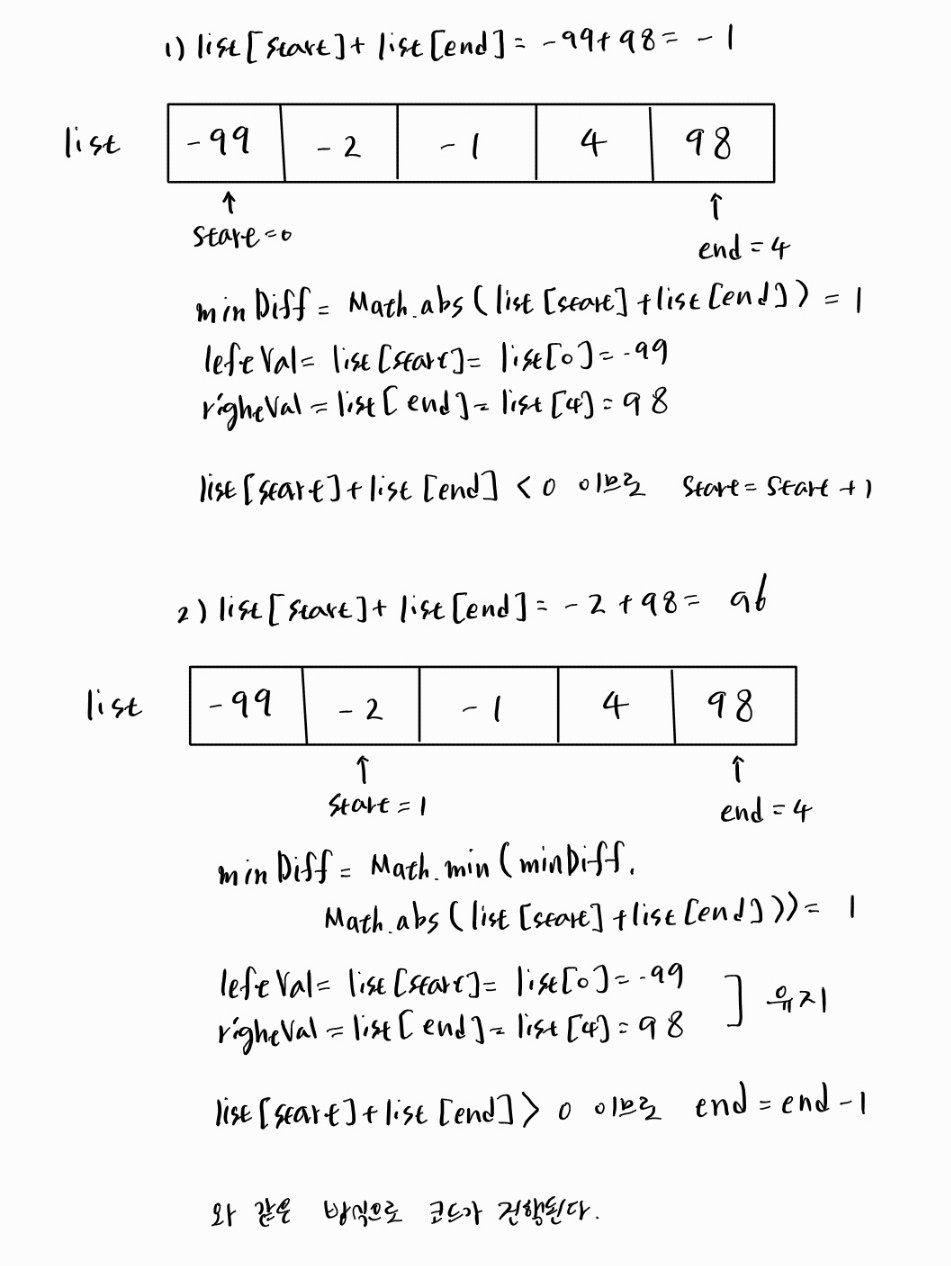 1) list[start]+ list[end]= -99+98= -1
list -99 -2 -1 4 98
↑ ↑
start=0
end=4
minDiff = Math.abs(list[start]+list[end]) = 1
leftVal= list[start]= list[0]=-99
rightVal=list[end]=list[4]=98
list[start]+list[end]<0 이므로 start=start+1
2) list[start]+ list[end]= -2+98= 96
list -99 -2 -1 4 98
↑ ↑
start=1
end=4
minDiff = Math.min(minDiff,
Math.abs(list[start]+list[end]))= 1
leftVal= list[start]= list[0]=-99
] 유지
rightVal=list[end]=list[4]=98
list[start]+list[end]>0 이므로 end=end-1
와 같은 방식으로 코드가 진행된다.